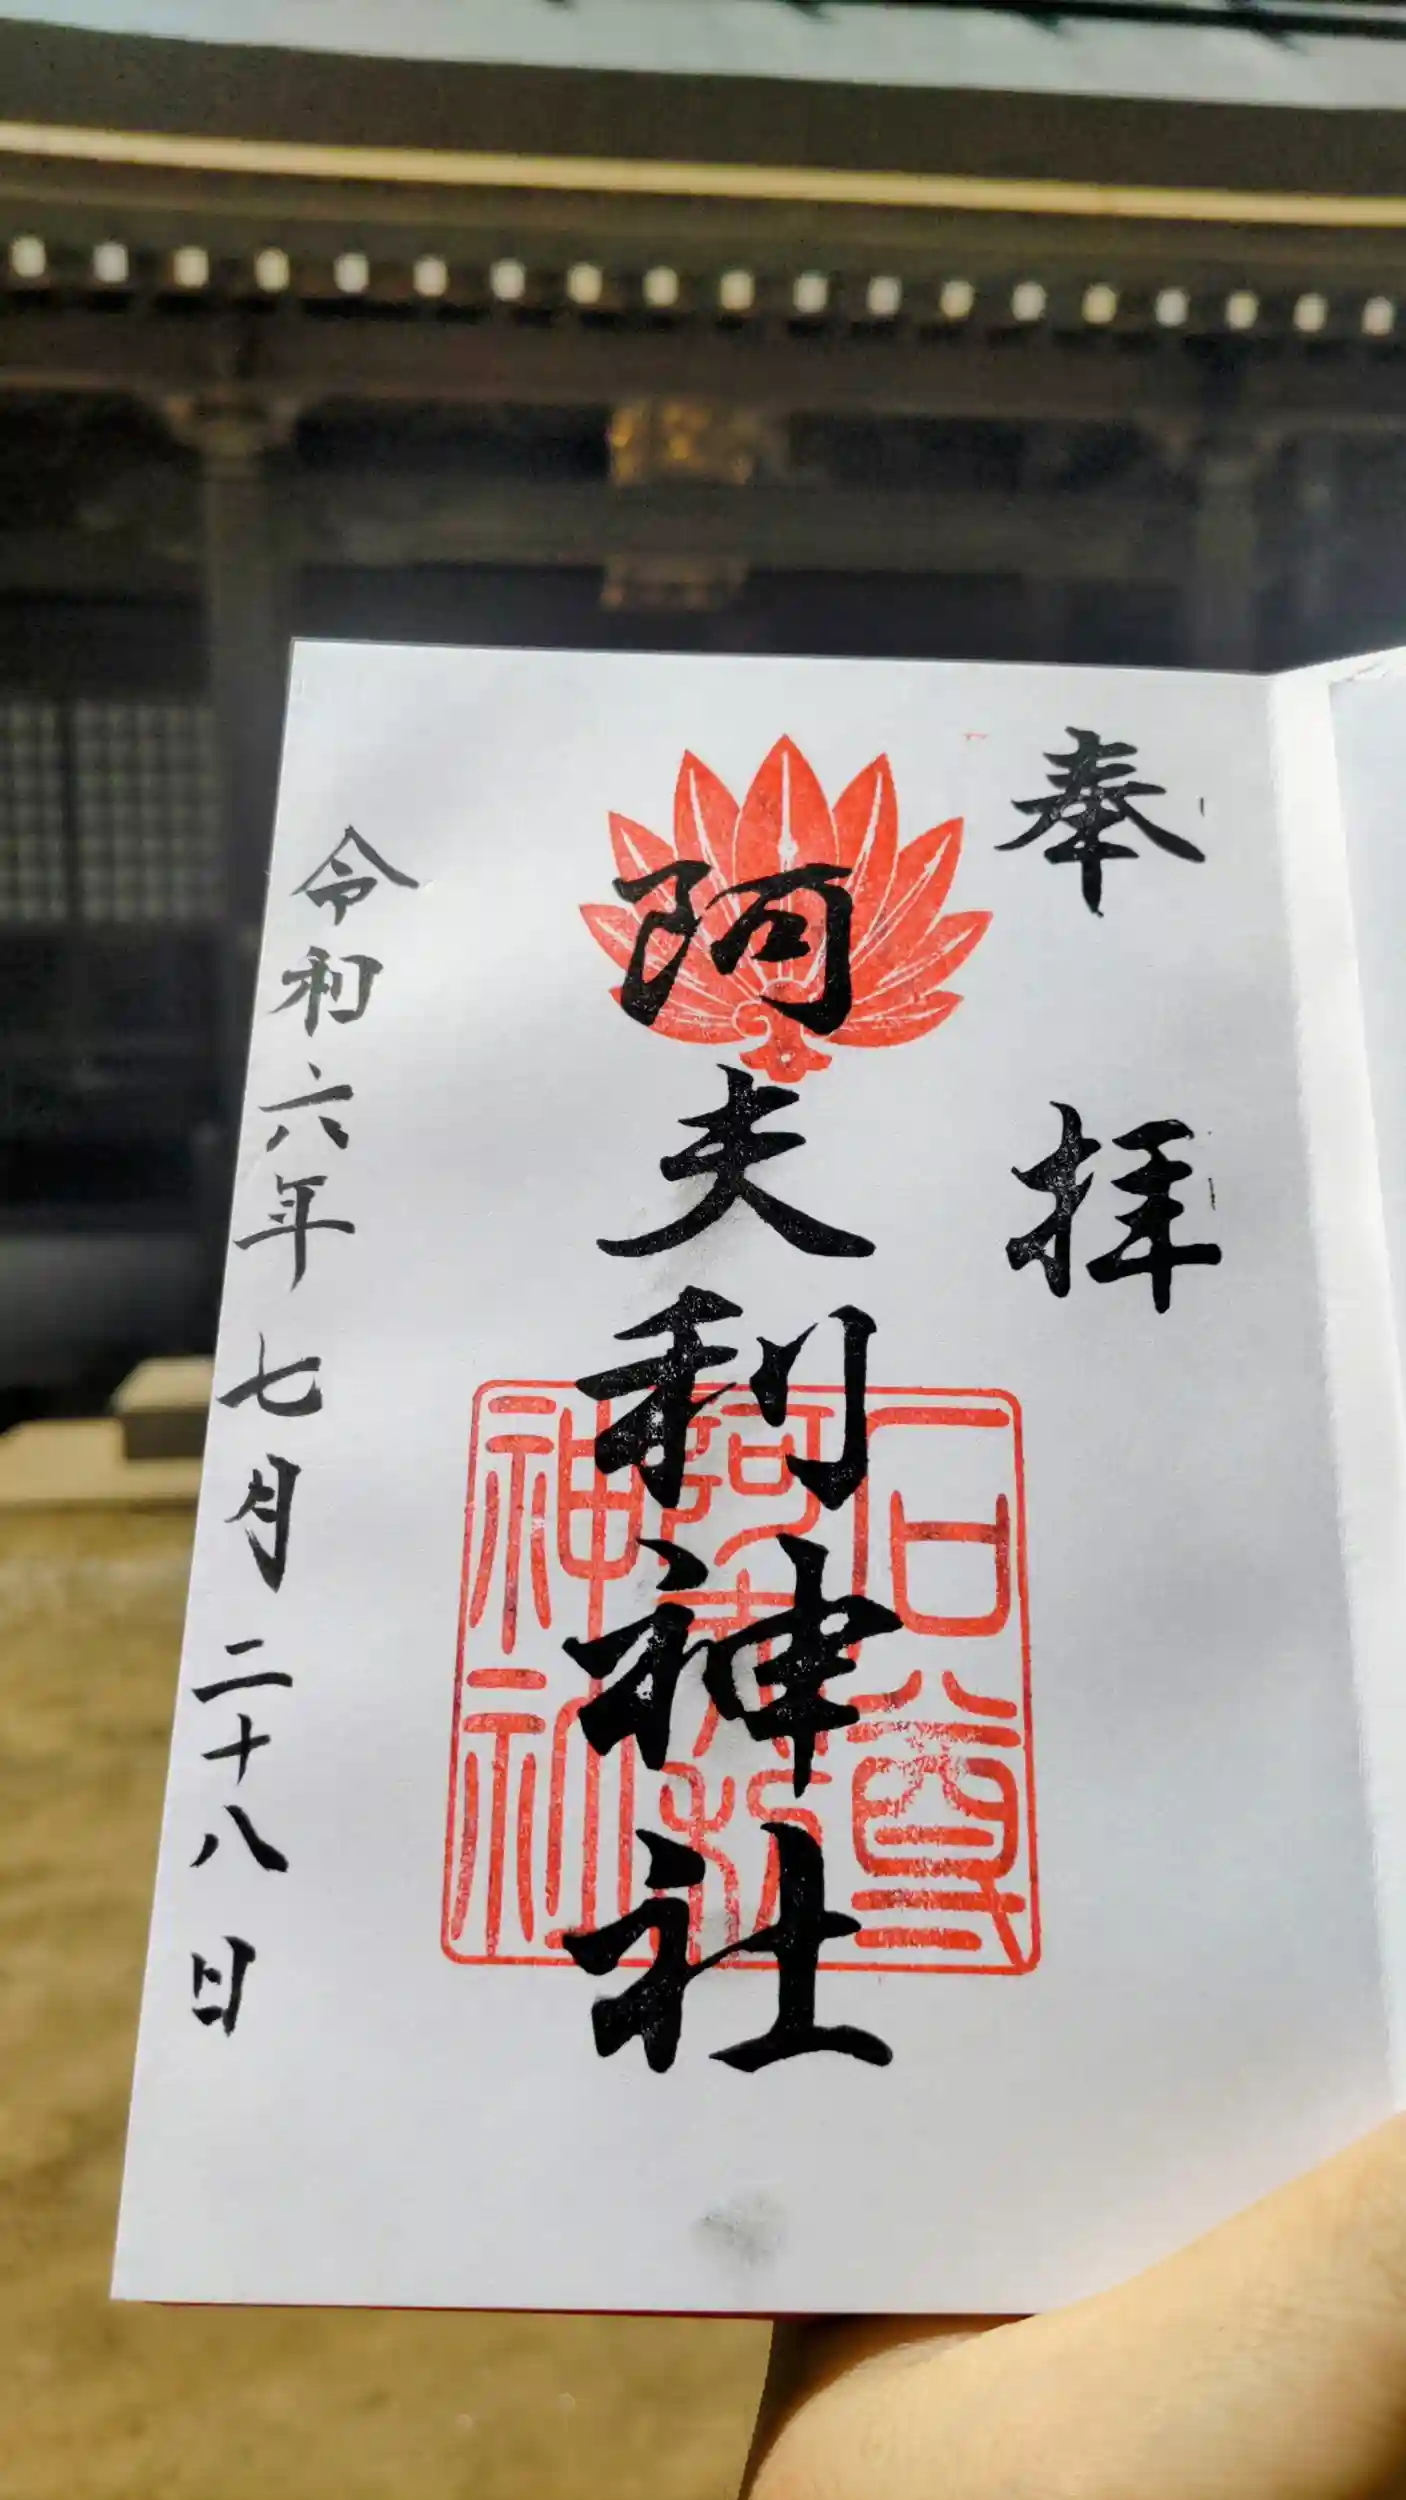 奉拝
阿夫利神社
石尊
阿夫利
神社
令和六年七月二十八日